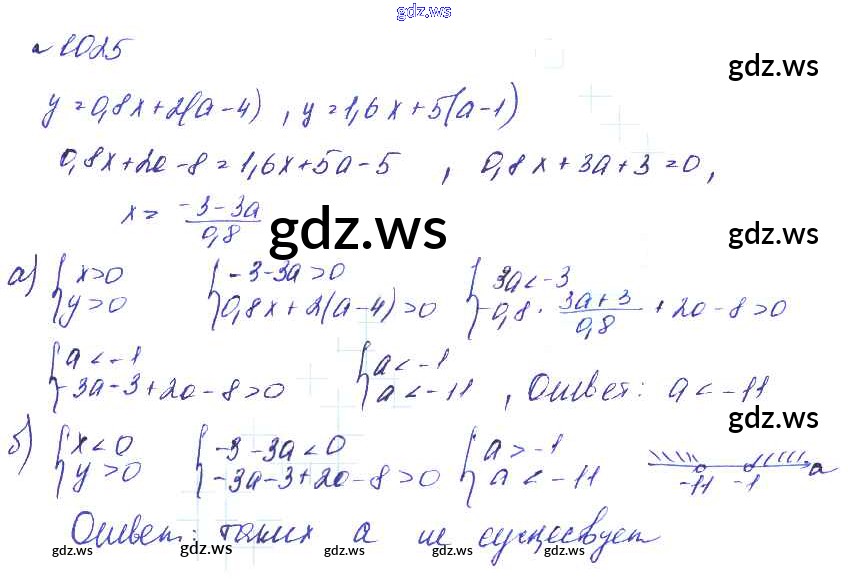 gdz.ws
№ 1025
gdz.ws
y = 0,8x + 2(a - 4) , y = 1,6x + 5(a - 1)
0,8x + 2a - 8 = 1,6x + 5a - 5 , 0,8x + 3a + 3 = 0,
x = \frac{-3-3a}{0,8}
gdz.ws gdz.ws
а) { x > 0 { -3-3a > 0 { 3a < -3
y > 0 0,8x + 2(a - 4) > 0 -0,8 · \frac{3a+3}{0,8} + 2a - 8 > 0
{ a < -1 { a < -1
-3a - 3 + 2a - 8 > 0 a < -11 , Ответ: a < -11
gdz.ws
б) { x < 0 { -3 - 3a < 0 { a > -1
y > 0 -3a - 3 + 2a - 8 > 0 a < -11 -11 -1 a
Ответ: таких a не существует
gdz.ws gdz.ws gdz.ws gdz.ws gdz.ws gdz.ws